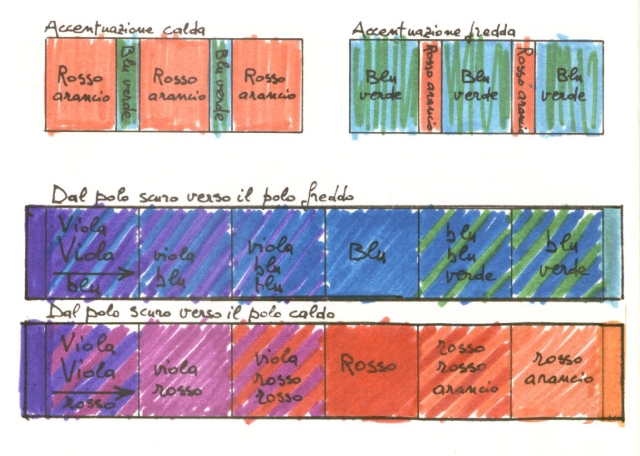 Accentuazione calda
Rosso
arancio
Blu verde
Rosso
arancio
Blu verde
Rosso
arancio
Accentuazione fredda
Blu
verde
Rosso arancio
Blu
verde
Rosso arancio
Blu
verde
Dal polo scuro verso il polo freddo
Viola
Viola
blu
viola
blu
viola
blu
blu
Blu
blu
blu
verde
blu
verde
Dal polo scuro verso il polo caldo
Viola
Viola
rosso
viola
rosso
viola
rosso
rosso
Rosso
rosso
rosso
arancio
rosso
arancio